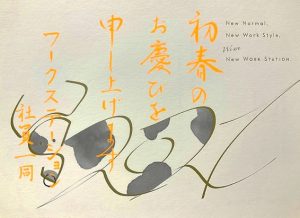 初春の
お慶びを
申し上げます
ワークステーション
社員一同
New Normal,
New Work Style,
New Work Station.